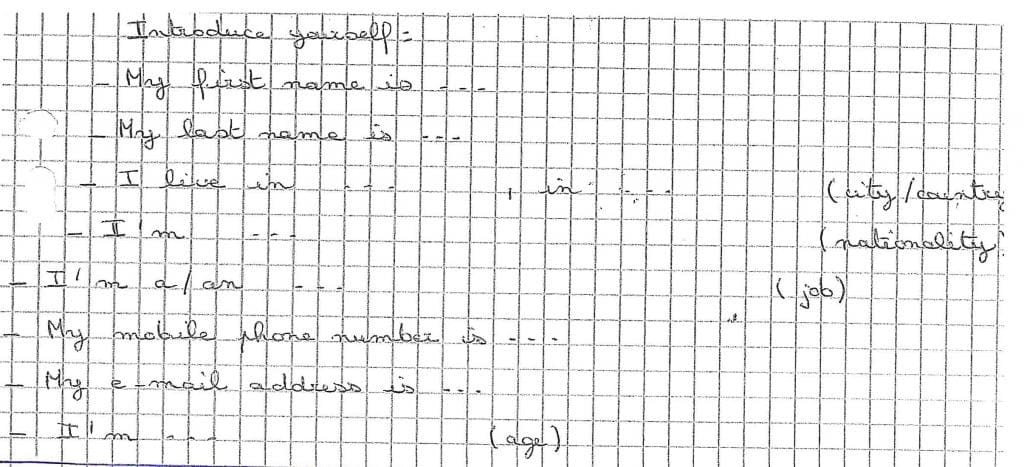 Introduce yourself =
- My first name is ---
- My last name is ---
- I live in --- , in --- (city/country
- I'm --- (nationality)
- I'm a/an --- (job)
- My mobile phone number is ---
- My e-mail address is ---
- I'm --- (age)